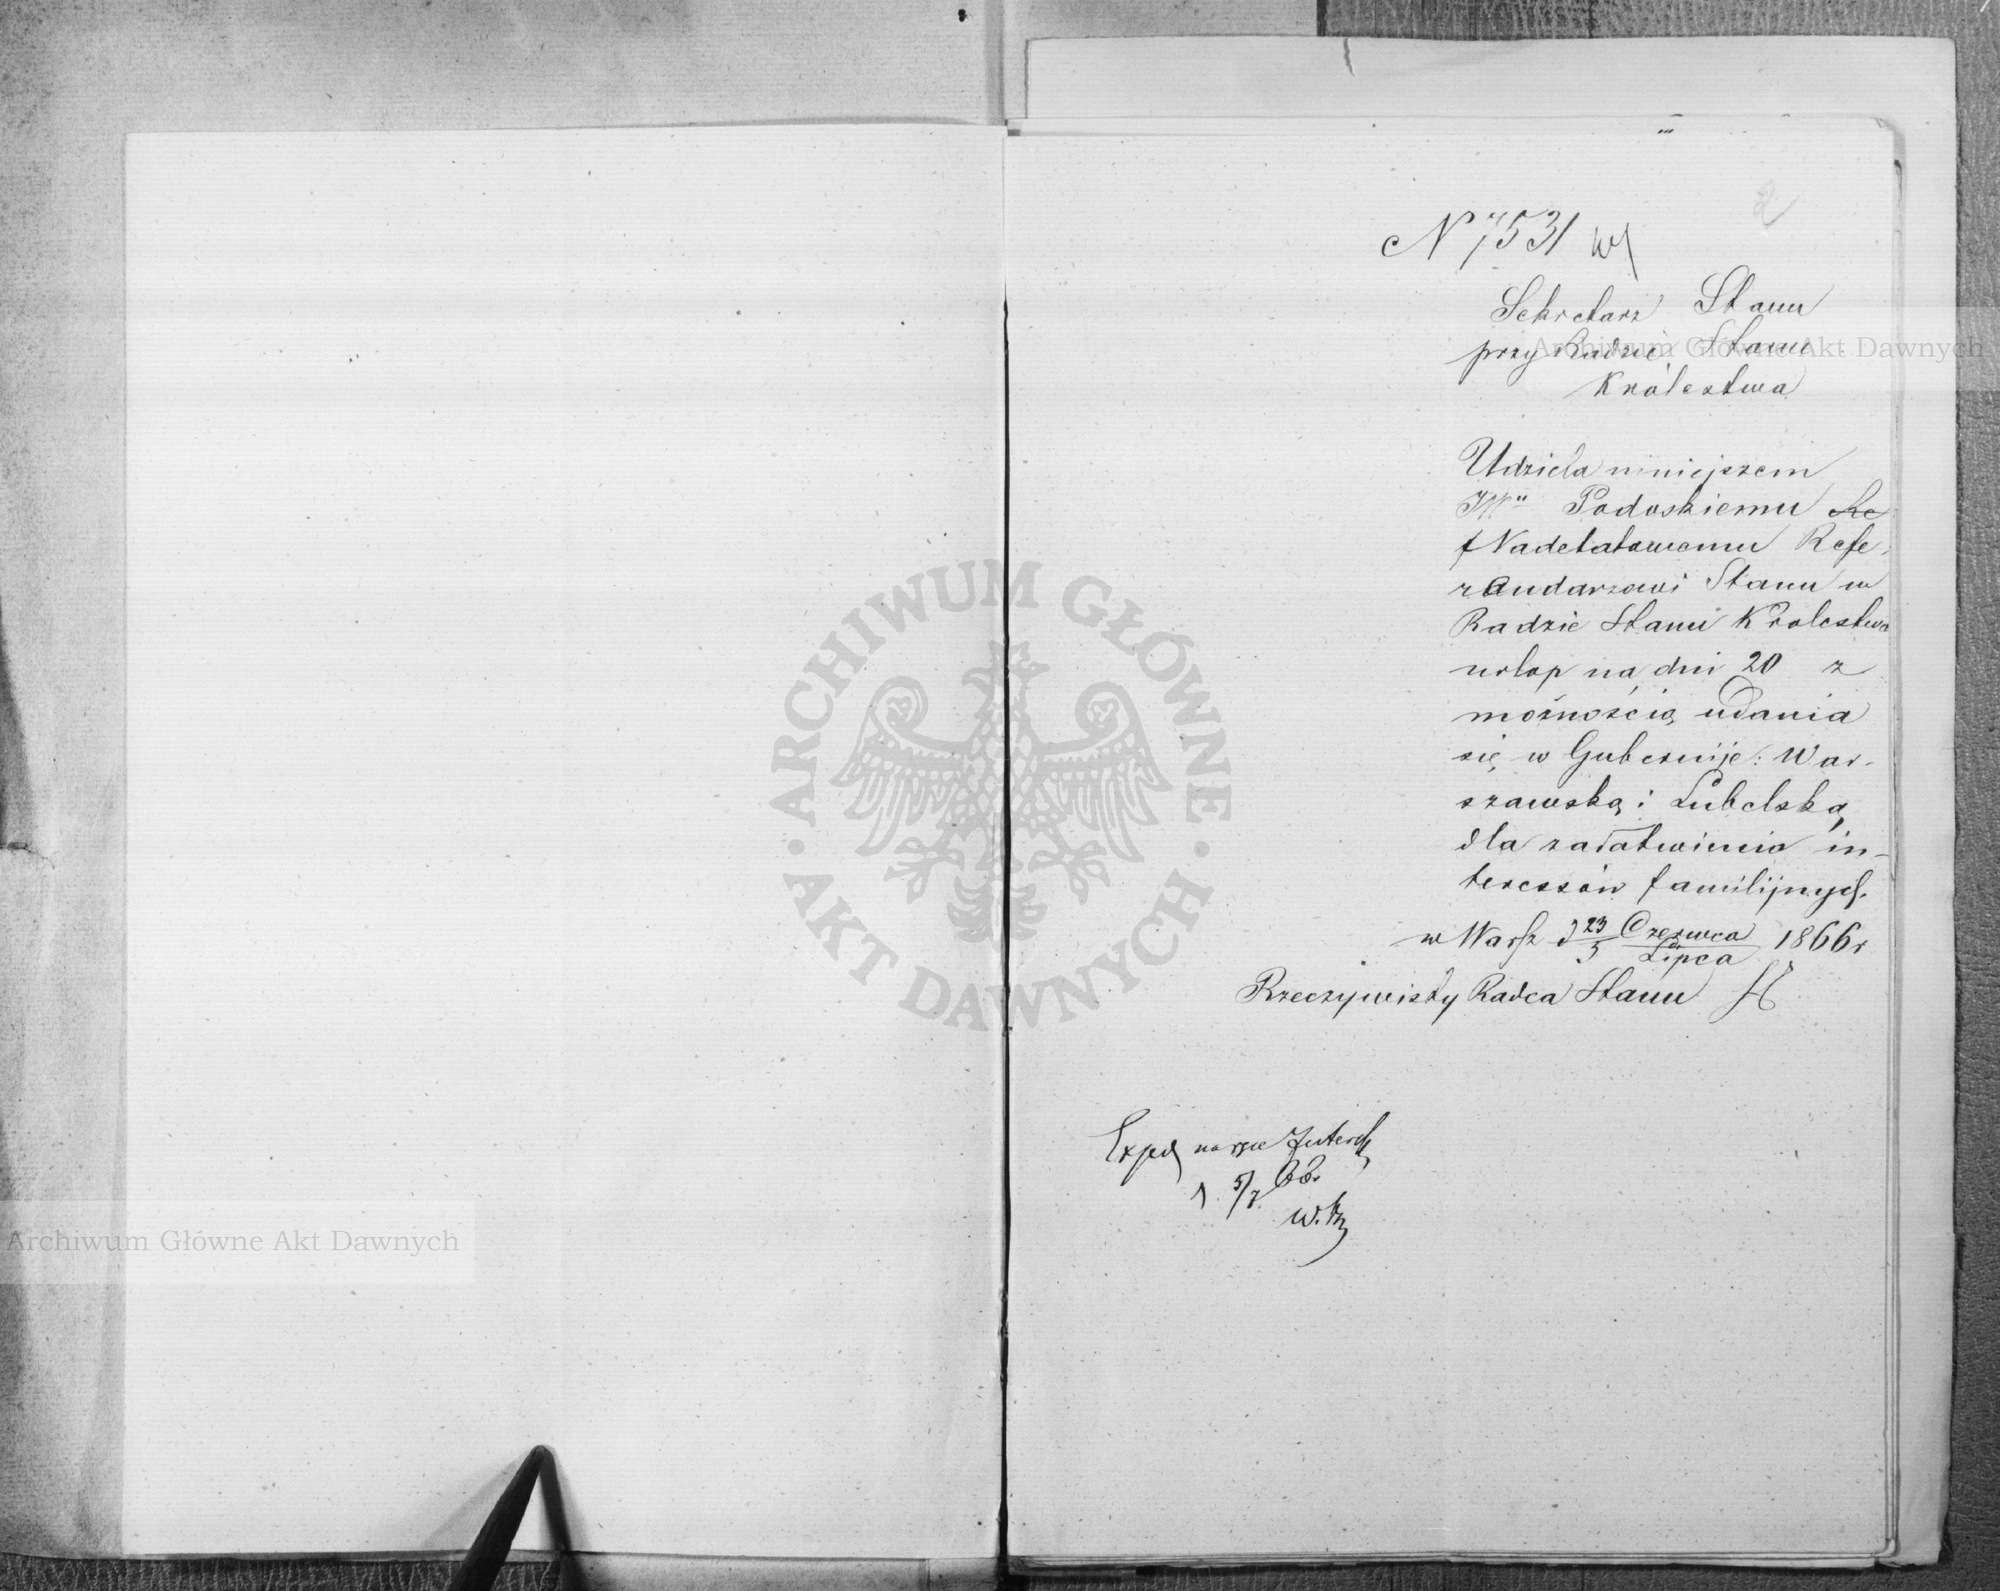 2
N 7531
Sekretarz Stanu
przy Radzie Stanu
Królestwa
Udziela niniejszem
JWu Podoskiemu Re
Nadetatowemu Refe-
randarzowi Stanu w
Radzie Stanu Królestwa
urlop na dni 20 z
możnością udania
się w Gubernije: War-
szawską i Lubelską
dla załatwienia in-
teressów familijnych.
w Warsz d 23/5 Czerwca/Lipca 1866 r
Rzeczywisty Radca Stanu
Exped na ręce
5/7 66.
ARCHIWUM GŁÓWNE AKT DAWNYCH
Archiwum Główne Akt Dawnych
Archiwum Główne Akt Dawnych